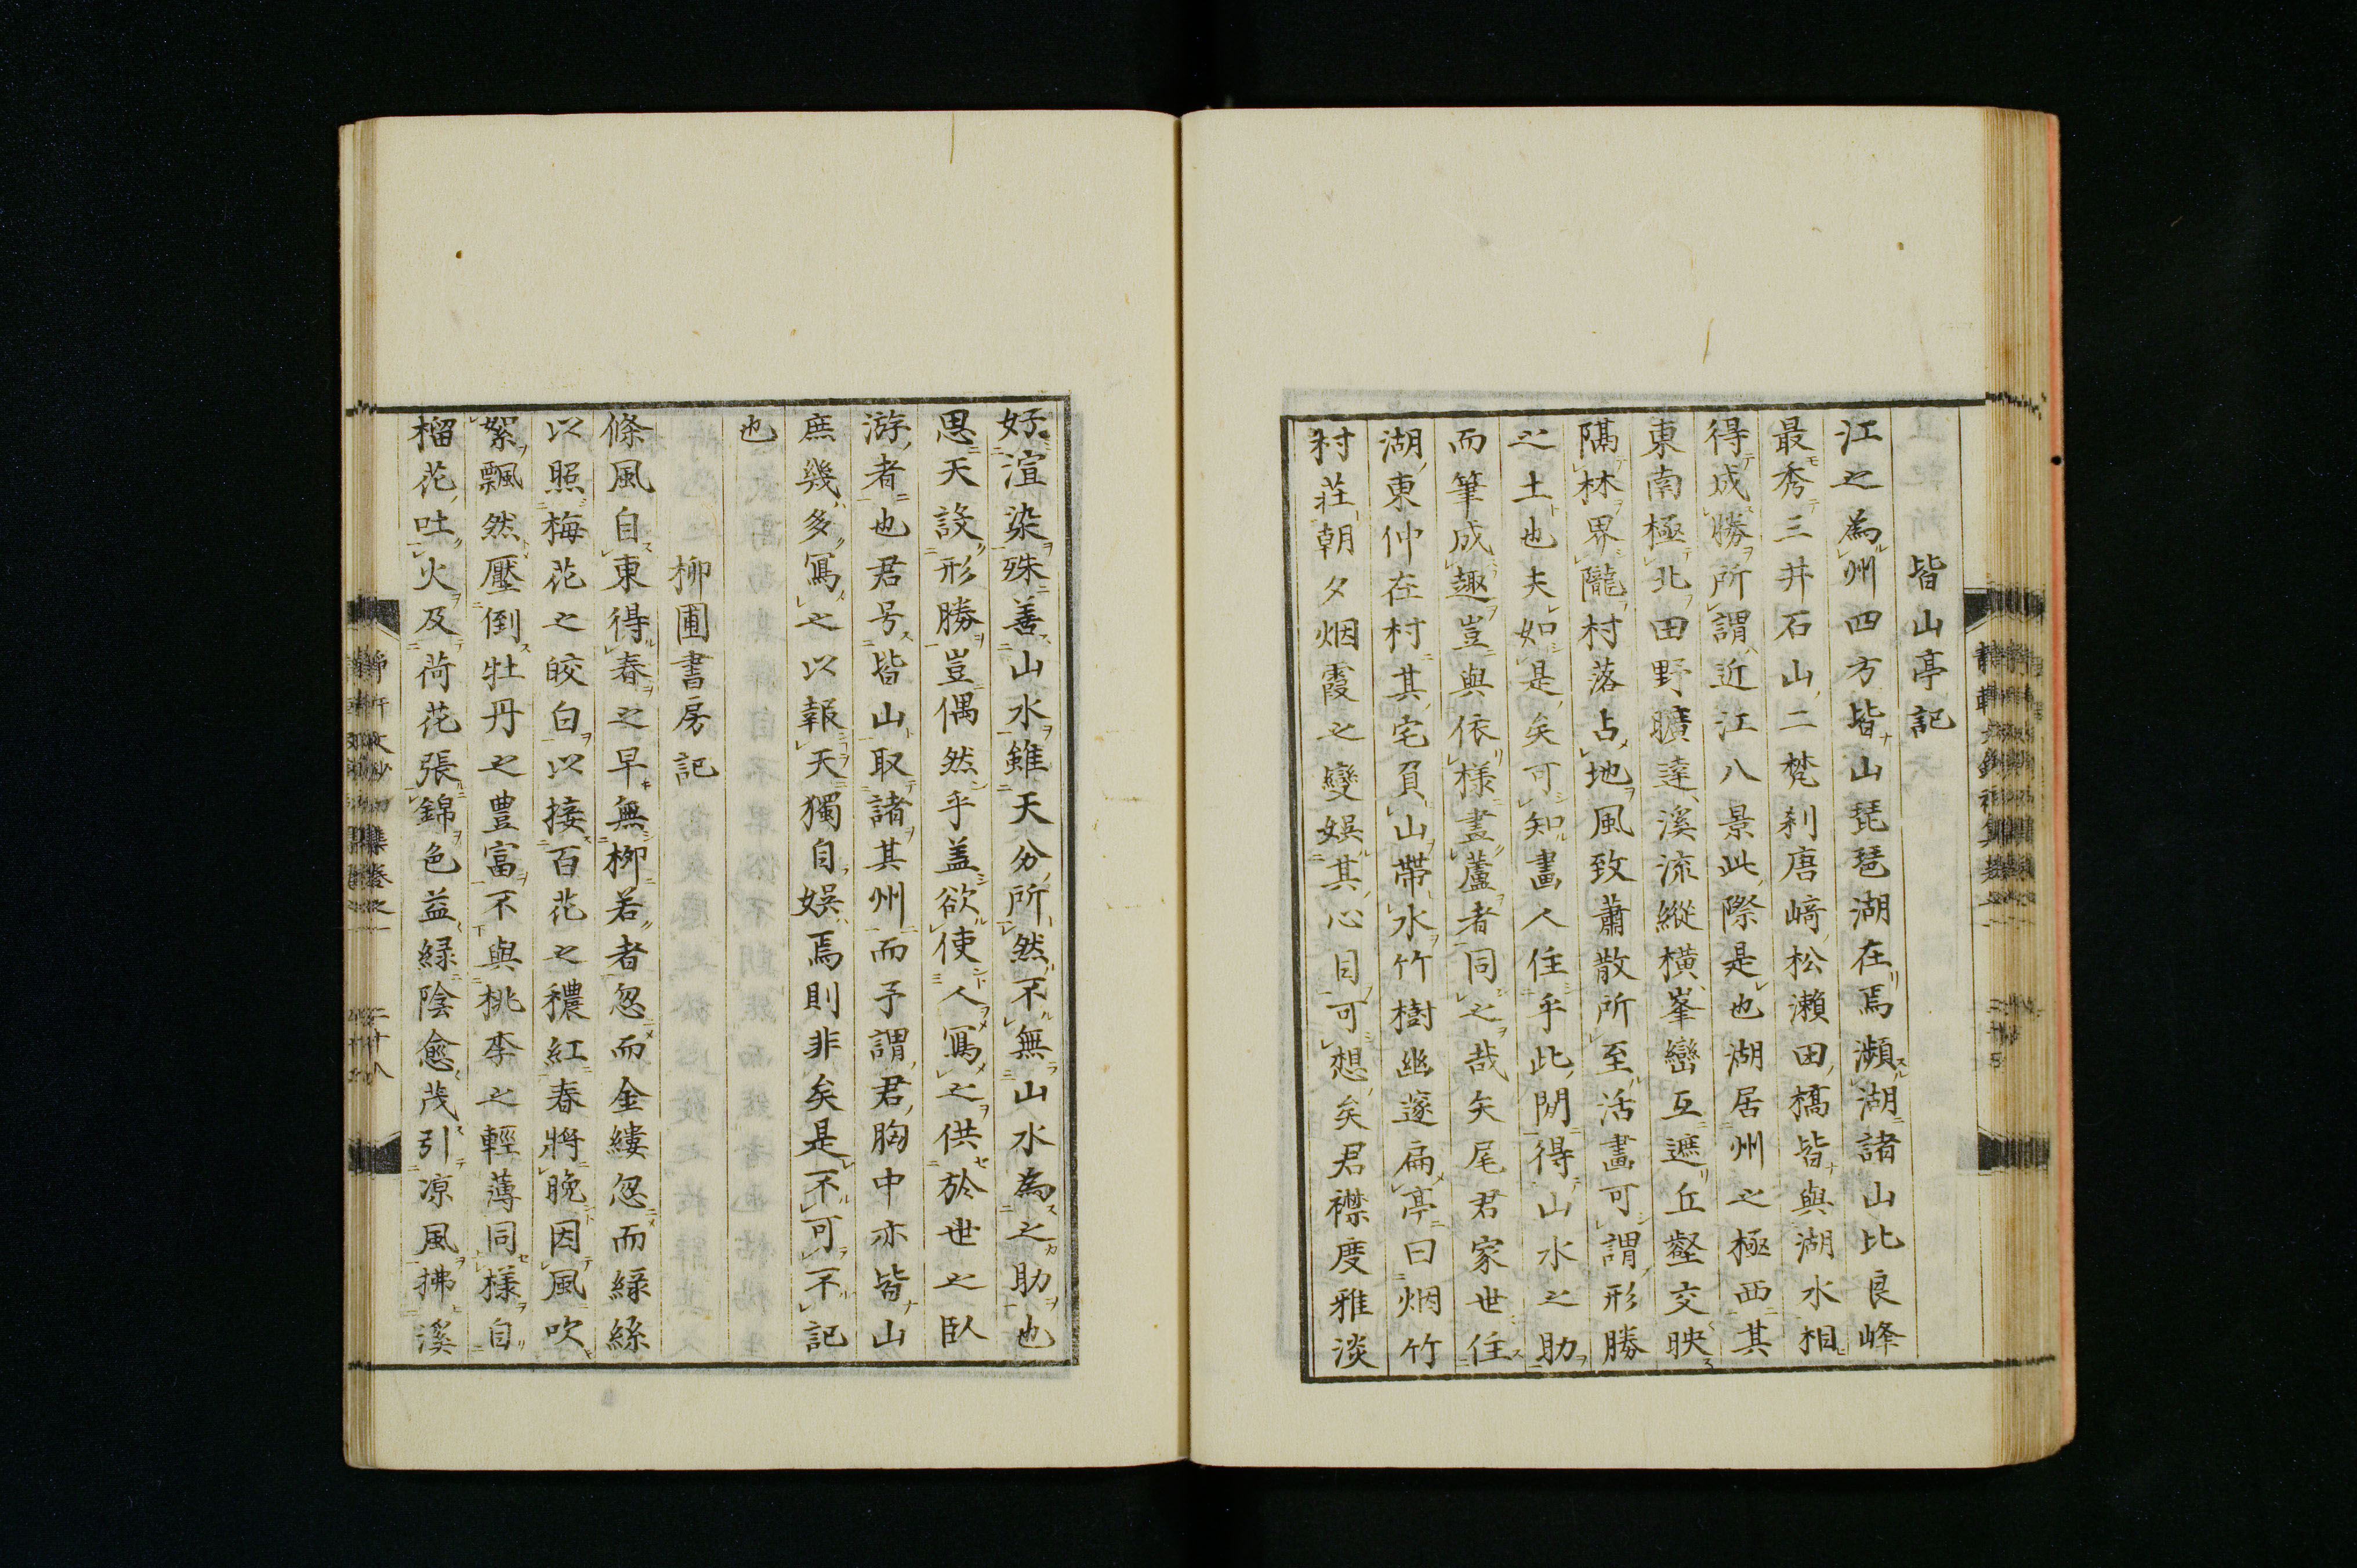 皆山亭記
江之為州四方皆山琵琶湖在焉瀕湖諸山比良峰
最秀三井石山二梵刹唐﨑松瀬田橋皆與湖水相
得成勝所謂近江八景此際是也湖居州之極西其
東南極北田野曠達溪流縱橫峯巒互遮丘壑交映
隔林界隴村落占地風致蕭散所至活畫可謂形勝
之土也夫如是矣可知畫人住乎此閒得山水之助
而筆成趣豈與依樣畫蘆者同之哉矢尾君家世住
湖東仲在村其宅負山帶水竹樹幽邃扁亭曰烟竹
村莊朝夕烟霞之變娯其心目可想矣君襟度雅淡
好渲染殊善山水雖天分所然不無山水為之助也
思天設形勝豈偶然乎盖欲使人寫之供於世之臥
游者也君号皆山取諸其州而予謂君胸中亦皆山
庶幾多寫之以報天獨自娯焉則非矣是不可不記
也
柳圃書房記
條風自東得春之早無柳若者忽而金縷忽而綠絲
以照梅花之皎白以接百花之穠紅春將晚因風吹
絮飄然壓倒牡丹之豊富不與桃李之輕薄同樣自
榴花吐火及荷花張錦色益綠陰愈茂引凉風拂溪